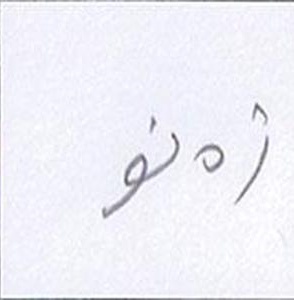 زه نو